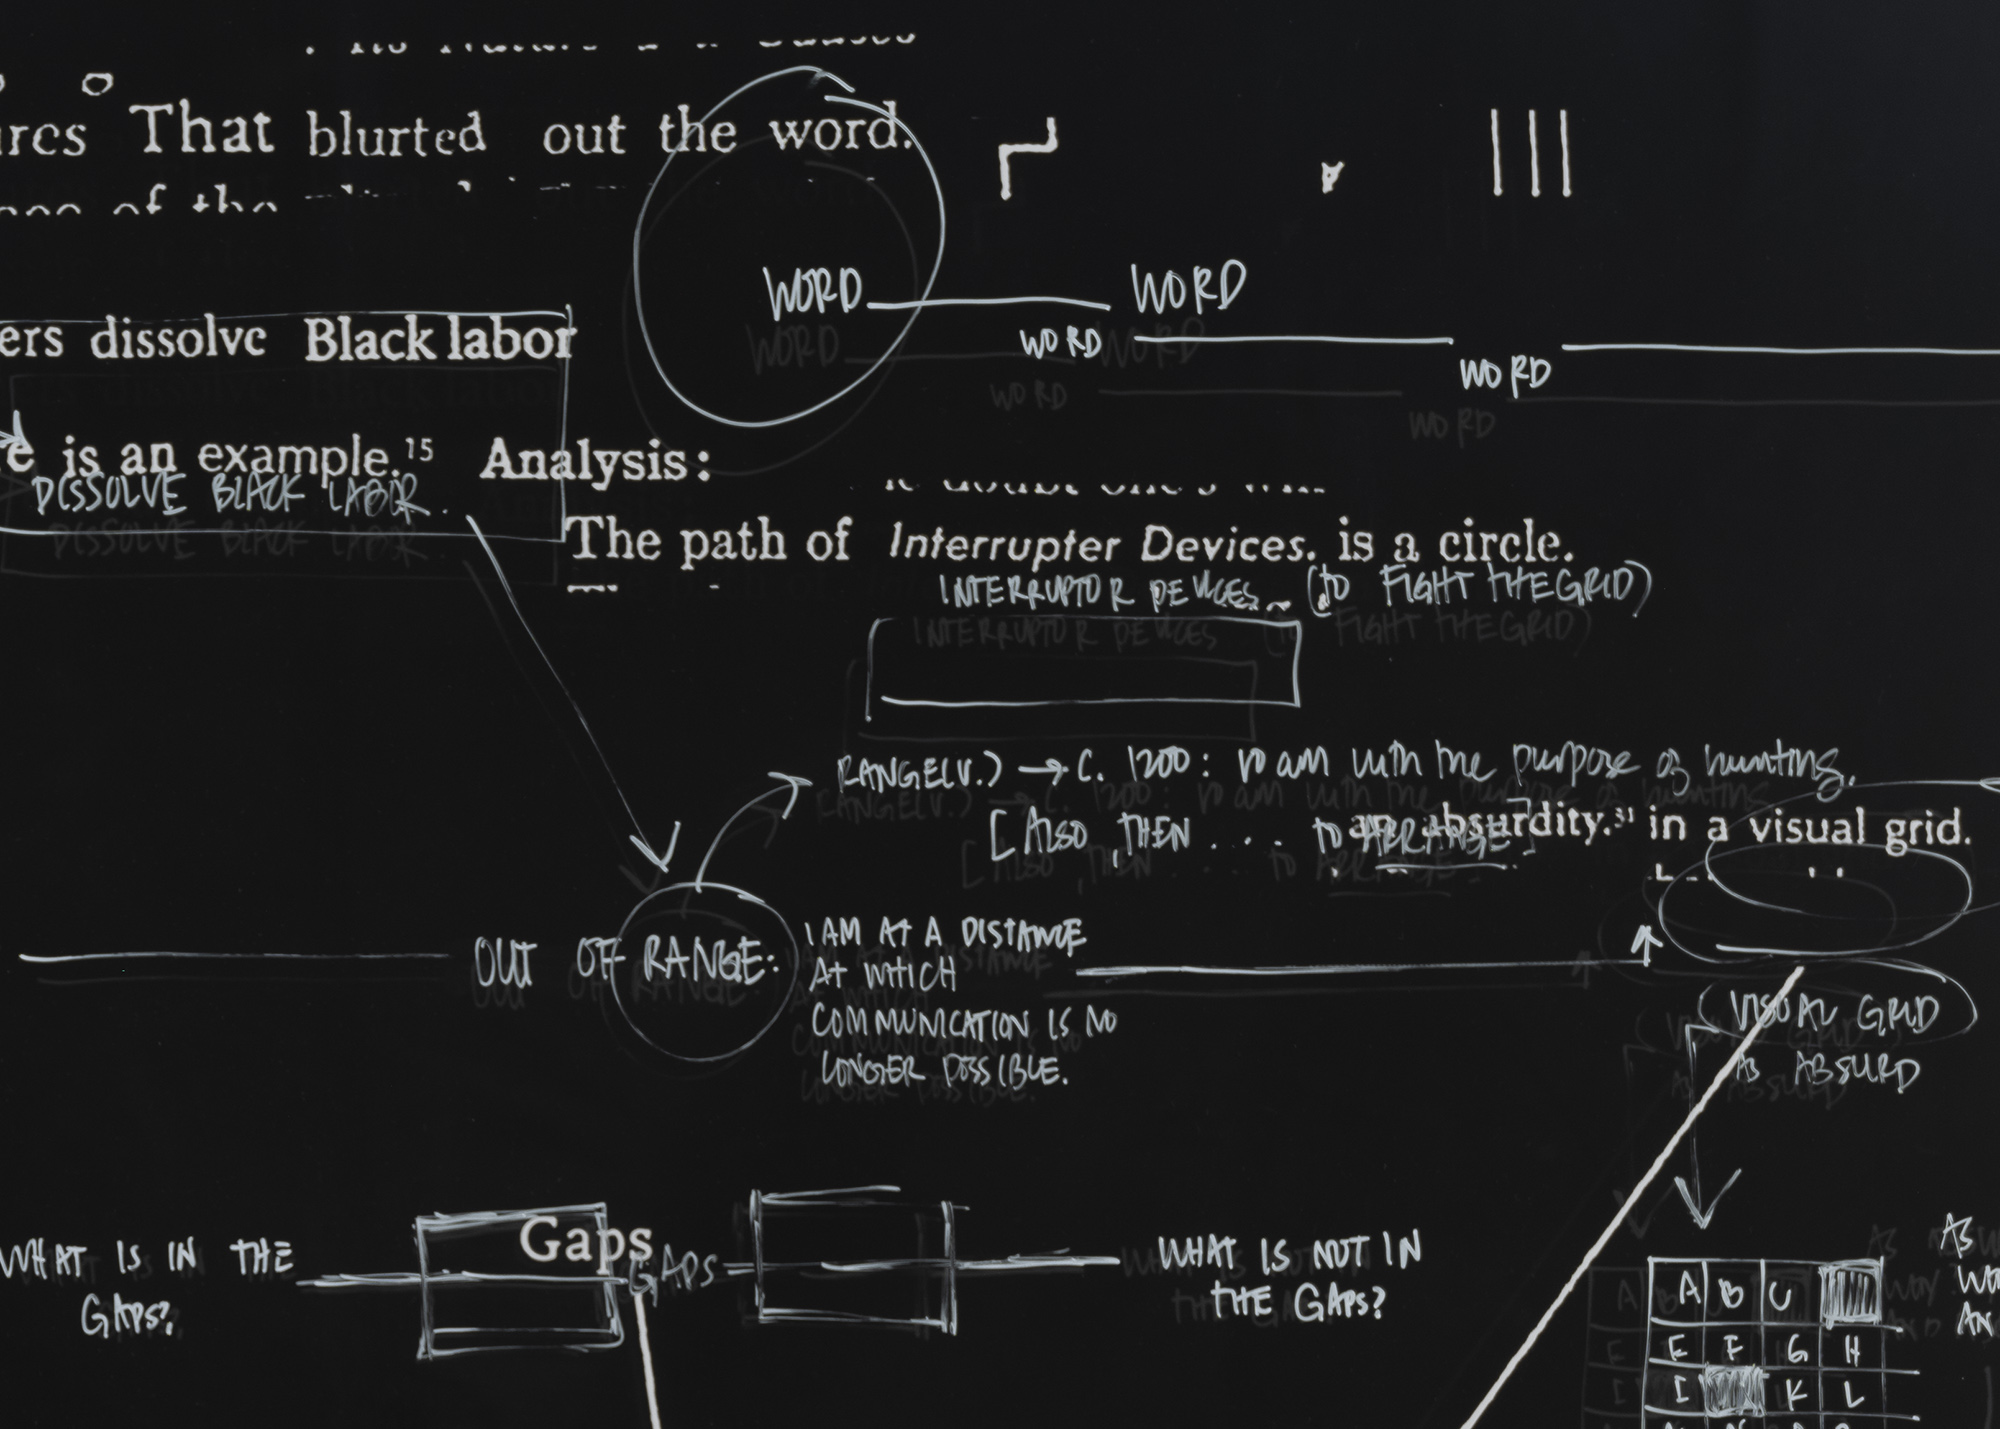 That blurted out the word.
of the
WORD WORD
WORD
WORD
ers dissolve Black labor
is an example.¹⁵ Analysis:
DISSOLVE BLACK LABOR.
The path of Interrupter Devices. is a circle.
INTERRUPTOR DEVICES (to FIGHT THE GRID)
RANGE(V.) → C. 1200: roam with the purpose of hunting.
[ALSO, THEN . . . . to ARRANGE]
an absurdity.³¹ in a visual grid.
OUT OF RANGE:
I AM AT A DISTANCE
AT WHICH
COMMUNICATION IS NO
LONGER POSSIBLE.
VISUAL GRID
AS ABSURD
WHAT IS IN THE
GAPS?
Gaps
GAPS
WHAT IS NOT IN
THE GAPS?
AS
AN
A B C
E F G H
I K L